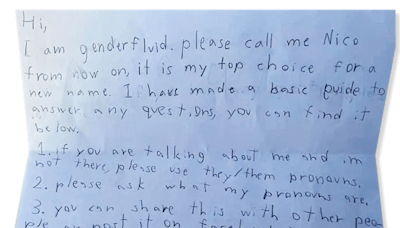 Hi,
I am genderfluid. please call me Nico
from now on, it is my top choice for a
new name. I have made a basic guide to
answer any questions, you can find it
below.
1. if you are talking about me and im
not there, please use they/them pronouns.
2. please ask what my pronouns are.
3. you can share this with other peo
ple or post it on